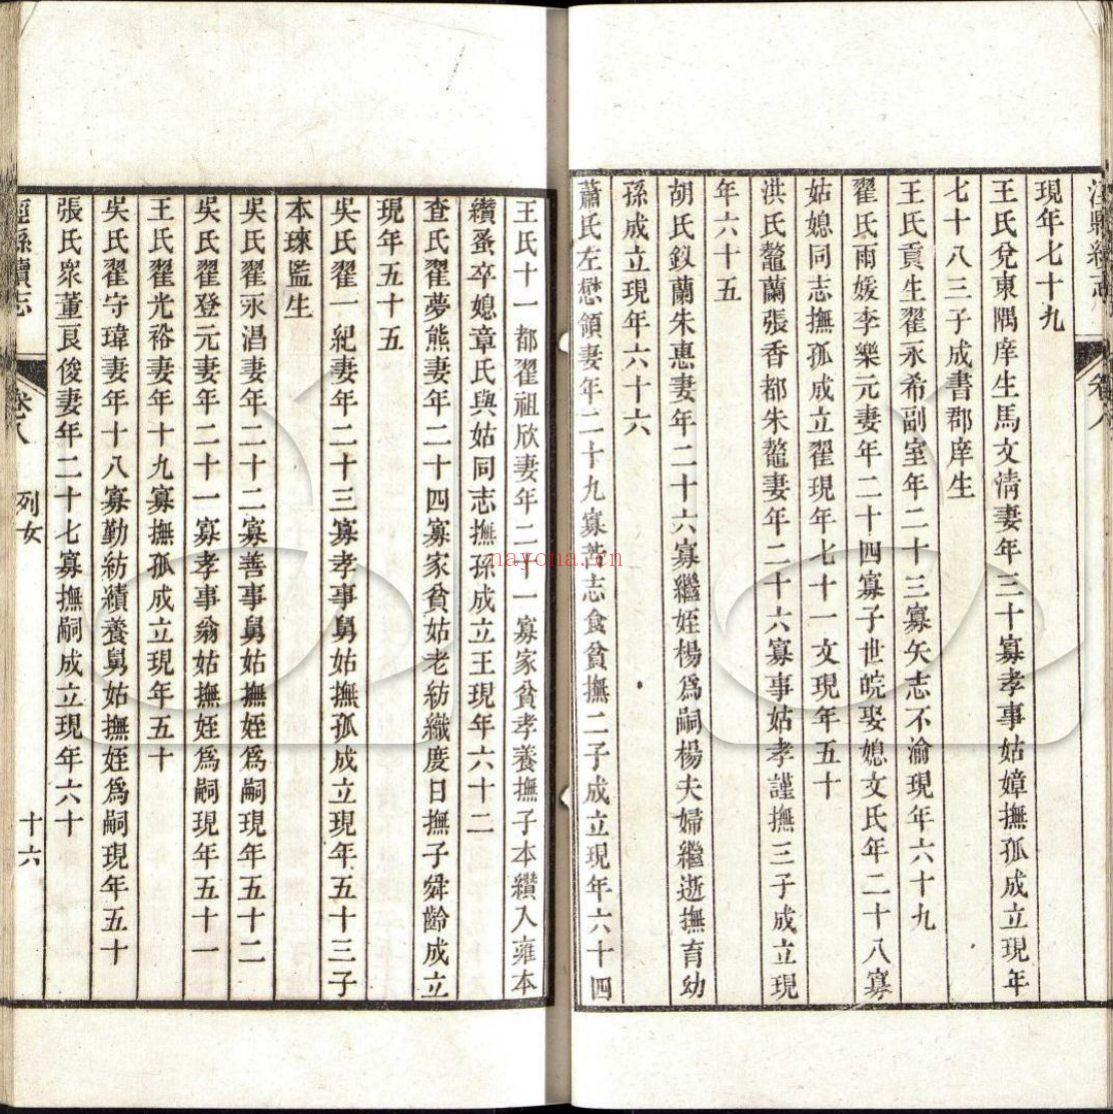 現年七十九
王氏兌東隅庠生馬文淸妻年三十寡孝事姑嫜撫孤成立現年
七十八三子成書郡庠生
王氏貢生翟永希副室年二十三寡矢志不渝現年六十九
翟氏雨媛李樂元妻年二十四寡子世皖娶媳文氏年二十八寡
姑媳同志撫孤成立翟現年七十一文現年五十
洪氏鼇蘭張香都朱鼇妻年二十六寡事姑孝謹撫三子成立現
年六十五
胡氏釵蘭朱惠妻年二十六寡繼姪楊爲嗣楊夫婦繼逝撫育幼
孫成立現年六十六
蕭氏左懋領妻年二十九寡苦志食貧撫二子成立現年六十四
王氏十一都翟祖欣妻年二十一寡家貧孝養撫子本纘入雍本
纘蚤卒媳章氏與姑同志撫孫成立王現年六十二
查氏翟夢熊妻年二十四寡家貧姑老紡織度日撫子舜齡成立
現年五十五
吳氏翟一紀妻年二十三寡孝事舅姑撫孤成立現年五十三子
本琜監生
吳氏翟永淐妻年二十二寡善事舅姑撫姪爲嗣現年五十二
吳氏翟登元妻年二十一寡孝事翁姑撫姪爲嗣現年五十一
王氏翟光裕妻年十九寡撫孤成立現年五十
吳氏翟守瑋妻年十八寡勤紡績養舅姑撫姪爲嗣現年五十
張氏衆董良俊妻年二十七寡撫嗣成立現年六十
涇縣續志 卷八 列女 十六
naycna.cn